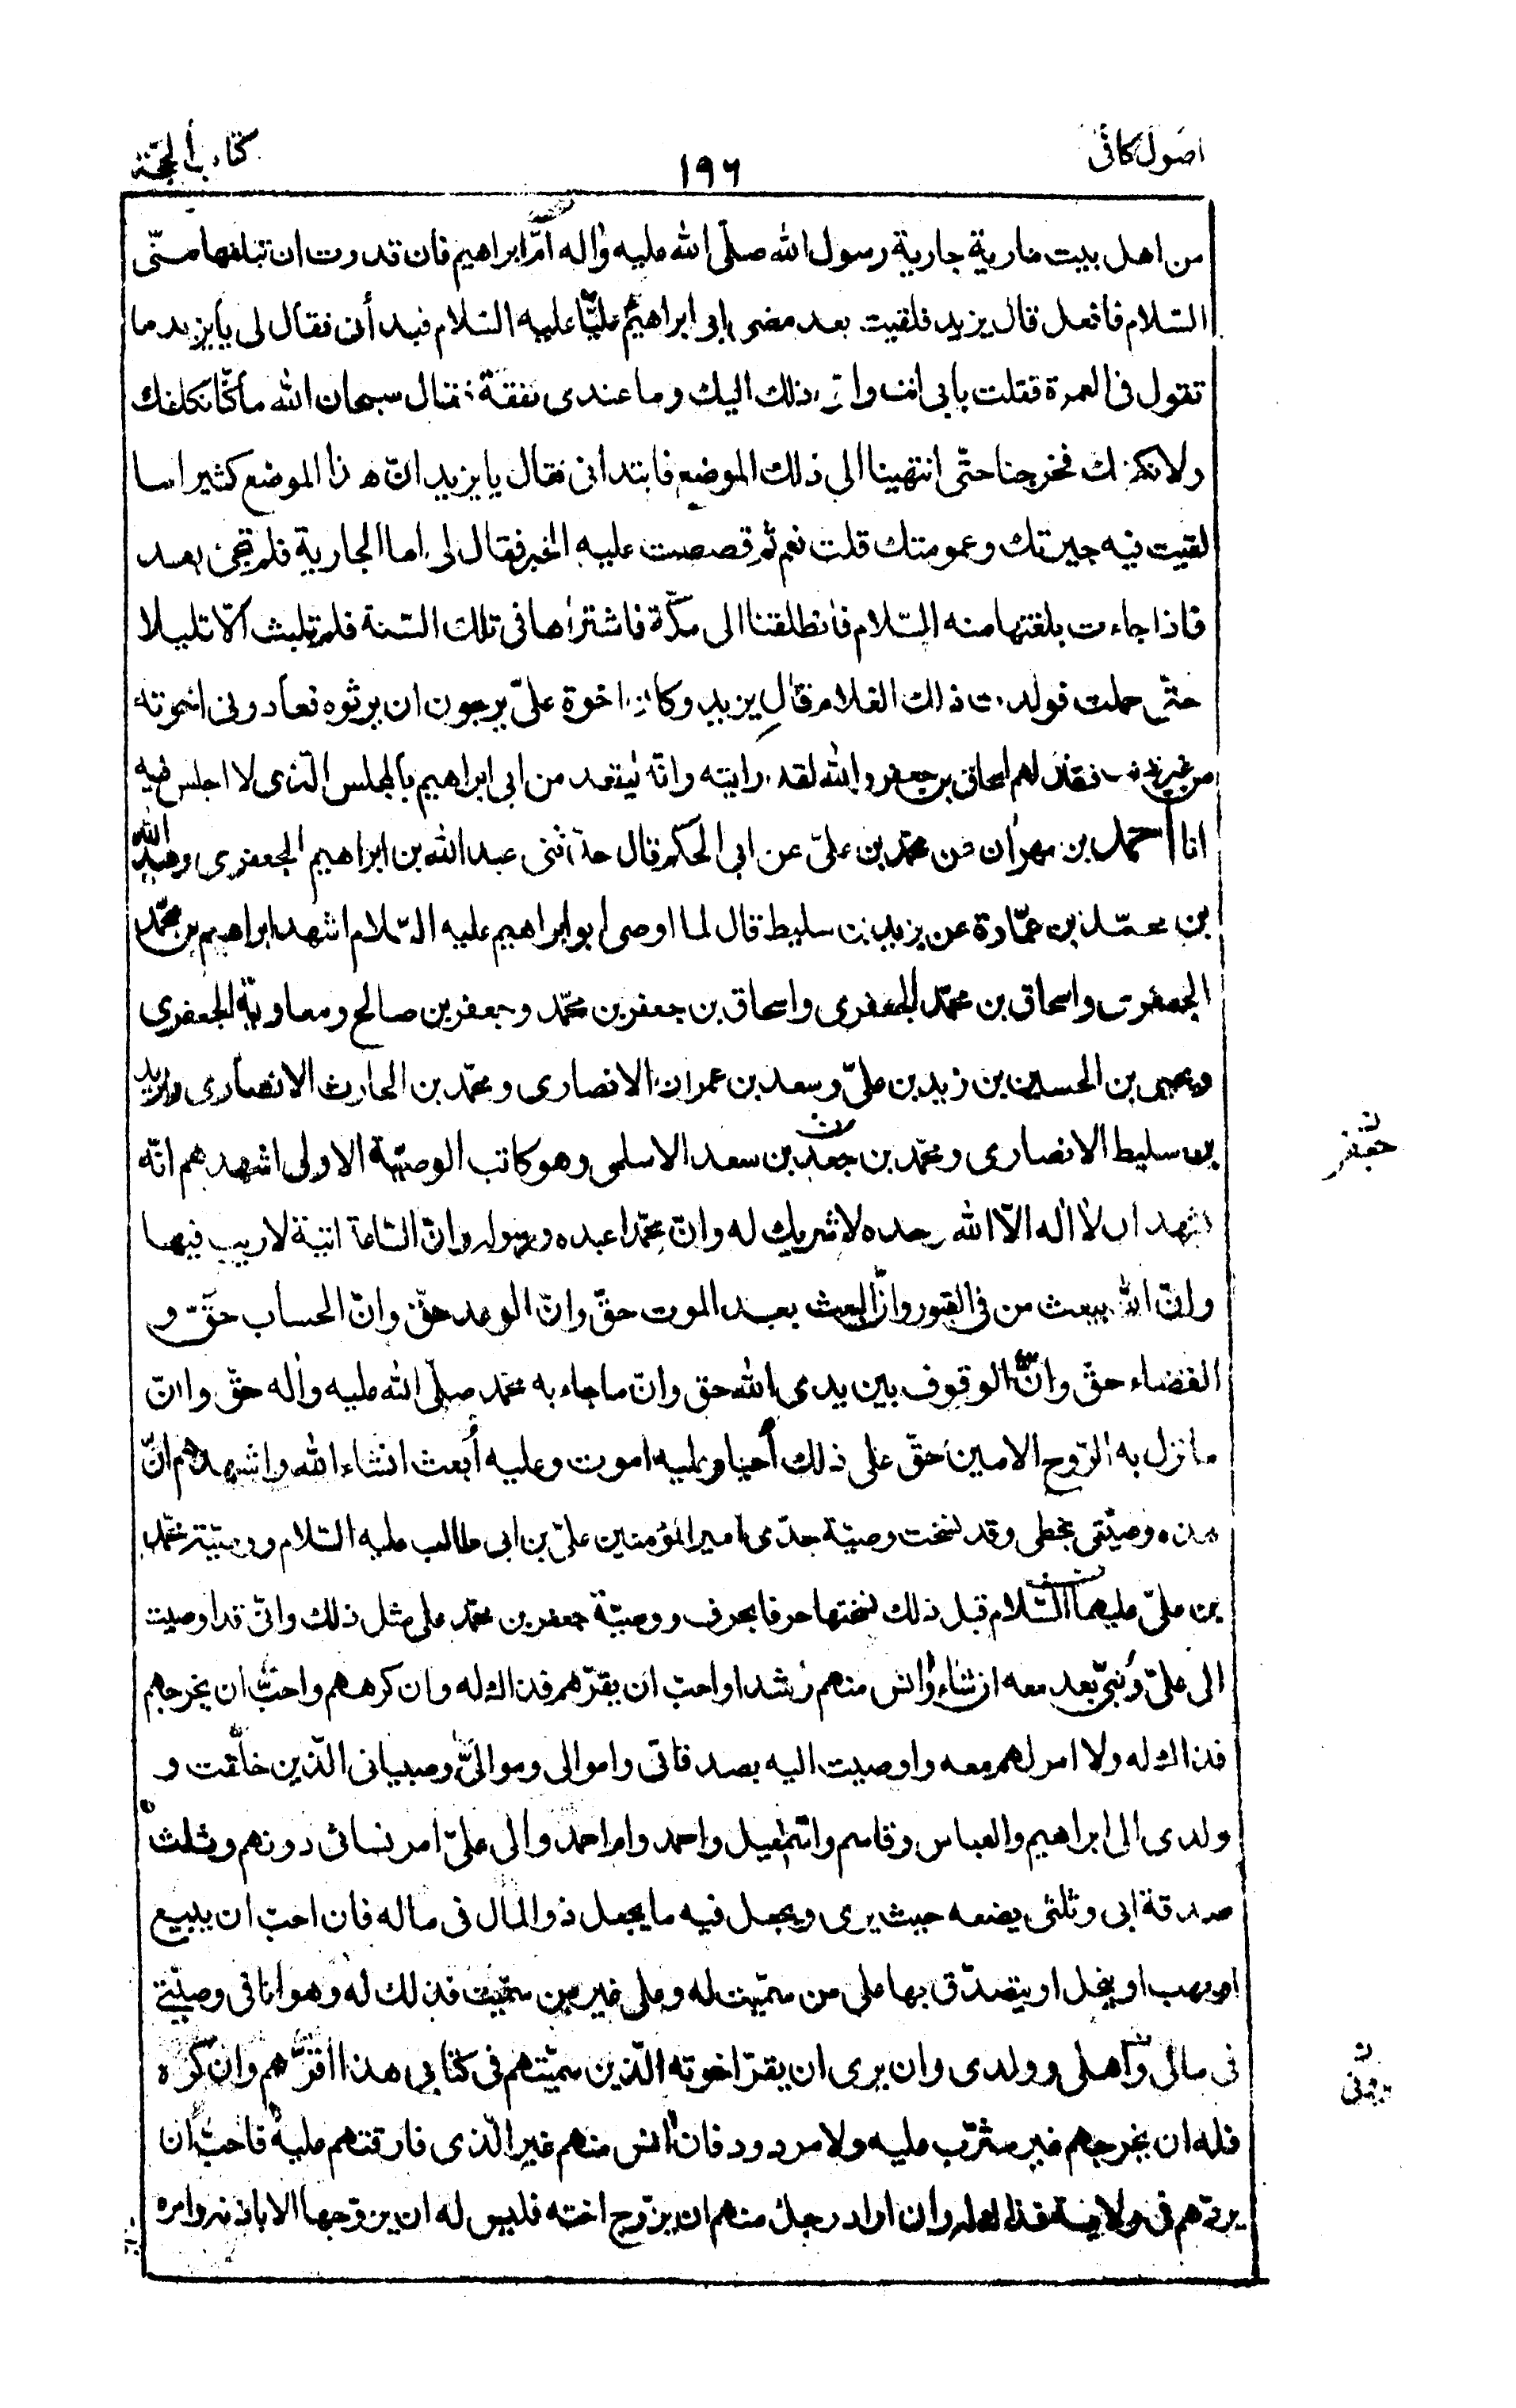 اصول كافى
١٩٦
كتاب الحجّة
من اهل بيت مارية جارية رسول الله صلّى الله عليه واله امّ ابراهيم فان قدرت ان تبلغها منّى
السّلام فافعل قال يزيد فلقيت بعد مضى ابى ابراهيم عليّا عليه السّلام فبدأنى فقال لى يا يزيد ما
تقول فى العمرة فقلت بابى انت وامّى ذلك اليك وما عندى نفقة فقال سبحان الله ما كنّا نكلفك
ولا نكفيك فخرجنا حتّى انتهينا الى ذلك الموضع فابتدانى فقال يا يزيد انّ هذا الموضع كثيرا ما
لقيت فيه جيرتك وعمومتك قلت نعم ثم قصصت عليه الخبر فقال لى اما الجارية فلم تجئ بعد
فاذا جاءت بلغتها منه السّلام فانطلقنا الى مكّة فاشتراها فى تلك السّنة فلم تلبث الّا قليلا
حتّى حملت فولدت ذلك الغلام قال يزيد وكان اخوة علىّ يرجون ان يرثوه فعادونى اخوته
من غير ذنب فقال لهم اسحاق بن جعفر والله لقد رايته وانّه ليقعد من ابى ابراهيم بالمجلس الّذى لا اجلس فيه
انا احمد بن مهران عن محمّد بن علىّ عن ابى الحكم قال حدّثنى عبد الله بن ابراهيم الجعفرى وعبد الله
بن محمّد بن عمّارة عن يزيد بن سليط قال لما اوصى ابو ابراهيم عليه السّلام اشهد ابراهيم بن محمّد
الجعفرى واسحاق بن محمّد الجعفرى واسحاق بن جعفر بن محمّد وجعفر بن صالح ومعاوية الجعفرى
ويحيى بن الحسين بن زيد بن علىّ وسعد بن عمران الانصارى ومحمّد بن الحارث الانصارى ويزيد
بن سليط الانصارى ومحمّد بن جعد بن سعد الاسلمى وهو كاتب الوصيّة الاولى اشهدهم انّه
يشهد ان لا اله الّا الله وحده لا شريك له وانّ محمّدا عبده ورسوله وانّ السّاعة اتية لا ريب فيها
وانّ الله يبعث من فى القبور وانّ البعث بعد الموت حقّ وانّ الوعد حقّ وانّ الحساب حقّ و
القضاء حقّ وانّ الوقوف بين يدى الله حق وانّ ما جاء به محمّد صلّى الله عليه واله حقّ وانّ
ما نزل به الرّوح الامين حقّ على ذلك أحيا وعليه اموت وعليه أبعث انشاء الله واشهدهم انّ
هذه وصيّتى بخطى وقد نسخت وصيّة جدّى امير المؤمنين علىّ بن ابى طالب عليه السّلام ووصيّة محمّد
بن علىّ عليهما السّلام قبل ذلك نسختها حرفا بحرف ووصيّة جعفر بن محمّد على مثل ذلك وانّى قد اوصيت
الى علىّ وبنىّ بعد معه ان شاء وانس منهم رشدا واحبّ ان يقرّهم فذاك له وان كرههم واحبّ ان يخرجهم
فذاك له ولا امر لهم معه واوصيت اليه بصدقاتى واموالى وموالىّ وصبيانى الّذين خلّفت و
ولدى الى ابراهيم والعباس وقاسم واسمٰعيل واحمد وام احمد والى علىّ امر نسائى دونهم وثلث
صدقة ابى وثلثى يضعه حيث يرى ويجعل فيه ما يجعل ذو المال فى ماله فان احبّ ان يبيع
او يهب او ينحل او يتصدّق بها على من سمّيت له وعلى غير من سمّيت فذلك له وهو انا فى وصيّتى
فى مالى وأهلى وولدى وان يرى ان يقرّ اخوته الّذين سمّيتهم فى كتابى هذا اقرّهم وان كره
فله ان يخرجهم غير مثرّب عليه ولا مردود فان انس منهم غير الّذى فارقتهم عليه فاحبّ ان
يردّهم فى ولاية فذاك له وان اراد رجل منهم ان يزّوج اخته فليس له ان يزوّجها الا باذنه وامره